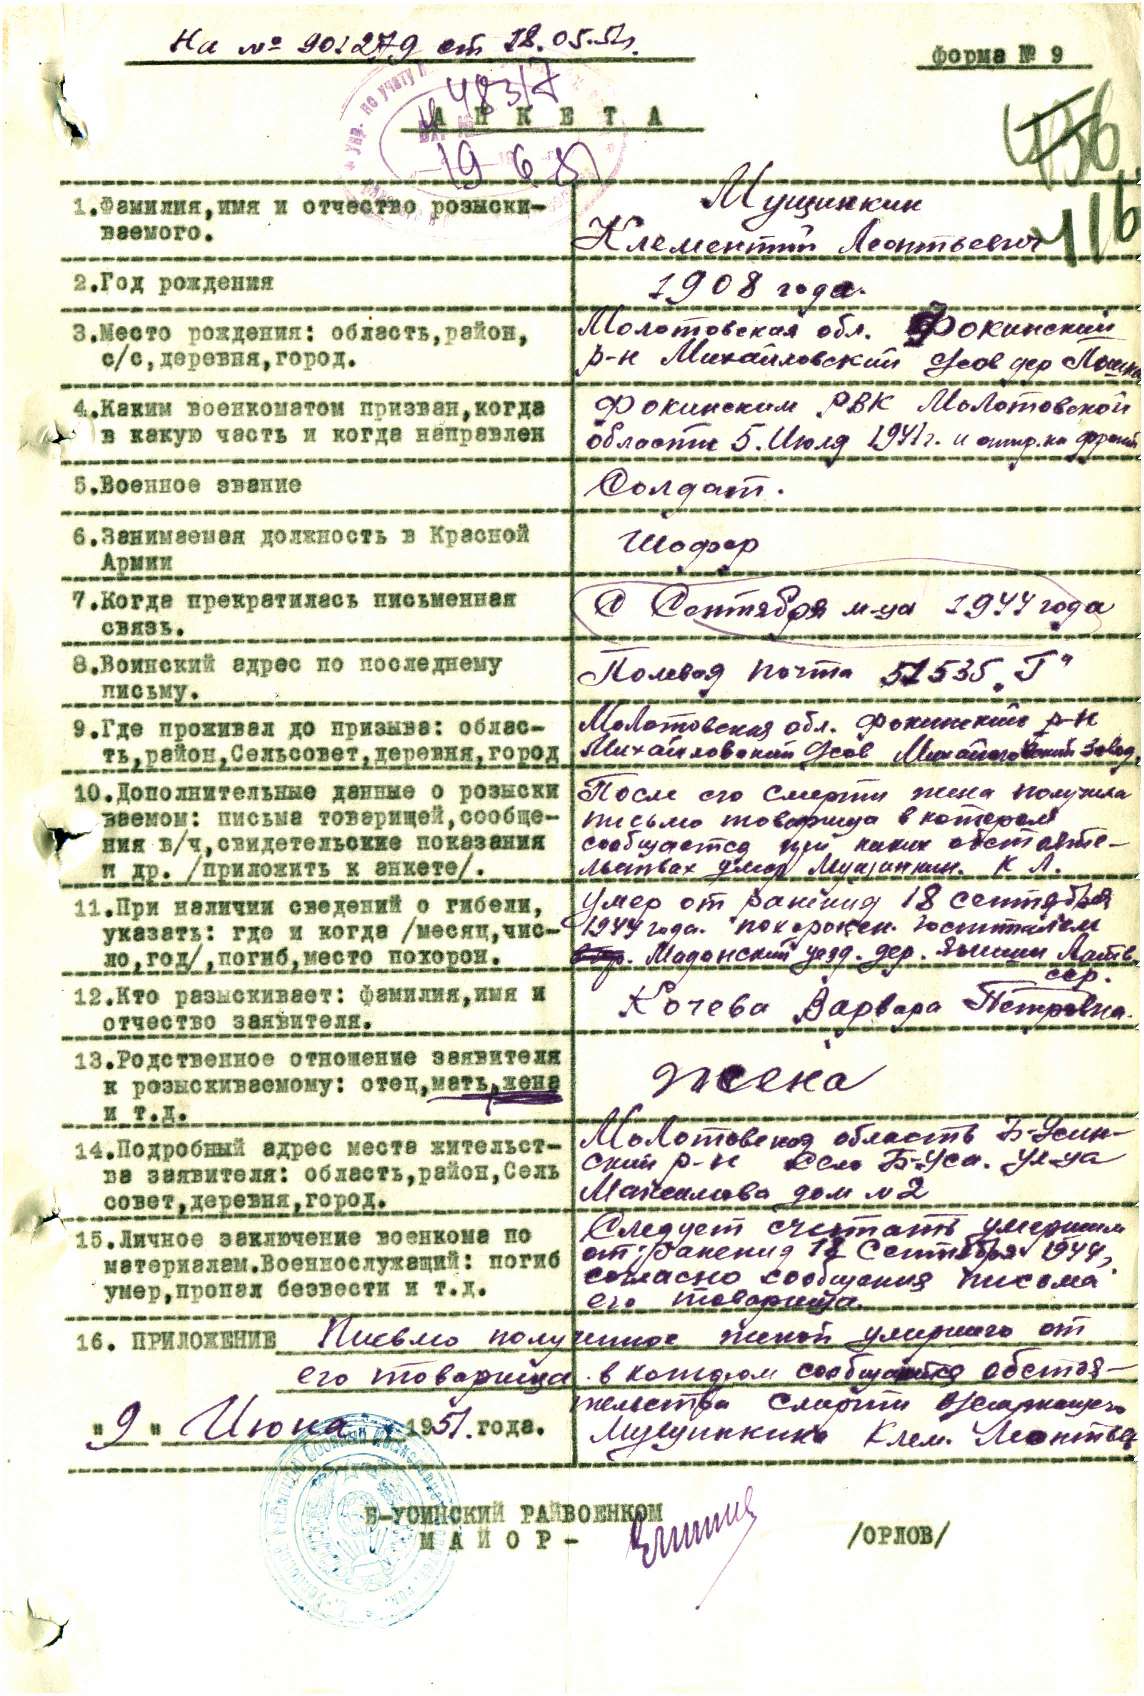 На № 901279 от 18.05.51г.
форма № 9
Упр. по учету
№ 48317
Вх. №
19 6 51
АНКЕТА
116
1.Фамилия,имя и отчество розыски-
ваемого.
Мущинкин
Клементий Леонтьевич
2.Год рождения
1908 года.
3.Место рождения: область,район,
с/с,деревня,город.
Молотовская обл. Фокинский
р-н Михайловский Усов дер
4.Каким военкоматом призван,когда
в какую часть и когда направлен
Фокинским РВК Молотовской
области 5. Июля 1941г. и отпр. на фронт
5.Военное звание
Солдат.
6.Занимаемая должность в Красной
Армии
Шофер
7.Когда прекратилась письменная
связь.
С Сентября м-ца 1944 года
8.Воинский адрес по последнему
письму.
Полевая почта 51535 „Г"
9.Где проживал до призыва: облас-
ть,район,Сельсовет,деревня,город
Молотовская обл. Фокинский р-н
Михайловский Усов Михайловский завод.
10.Дополнительные данные о розыски
ваемом: письма товарищей,сообще-
ния в/ч,свидетельские показания
и др. /приложить к анкете/.
После его смерти жена получила
письмо товарища в котором
сообщается при каких обстояте-
льствах умер Мущинкин. К Л.
11.При наличии сведений о гибели,
указать: где и когда /месяц,чис-
ло,год/,погиб,место похорон.
Умер от ранения 18 сентября
1944 года. похоронен. госпиталем
Мадонский уезд. дер. Латв.
сср.
12.Кто разыскивает: фамилия,имя и
отчество заявителя.
Кочева Варвара Петровна.
13.Родственное отношение заявителя
к розыскиваемому: отец,мать,жена
и т.д.
Жена
14.Подробный адрес места жительст-
ва заявителя: область,район,Сель
совет,деревня,город.
Молотовская область Б-Усин-
ский р-н село Б-Уса. ул-ца
дом № 2
15.Личное заключение военкома по
материалам.Военнослужащий: погиб
умер,пропал безвести и т.д.
Следует считать умершим
от ранения 18 Сентября 1944,
согласно сообщения письма
его товарища.
16. ПРИЛОЖЕНИЕ Письмо полученное женой умершего от
его товарища. в котором сообщается обстоя-
тельства смерти
Мущинкина Клем. Леонтьев
"9" Июня 1951.года.
Б-УСИНСКИЙ РАЙВОЕНКОМ
МАЙОР -
/ОРЛОВ/